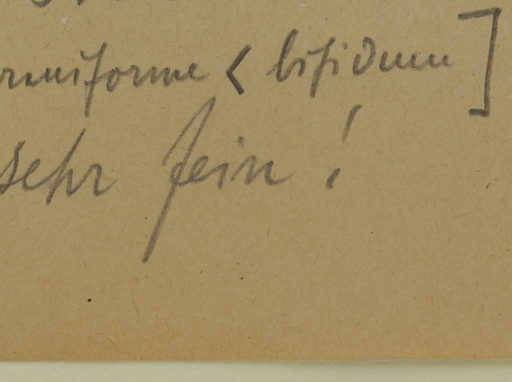 rmiforme < bifidum ]
sehr fein !